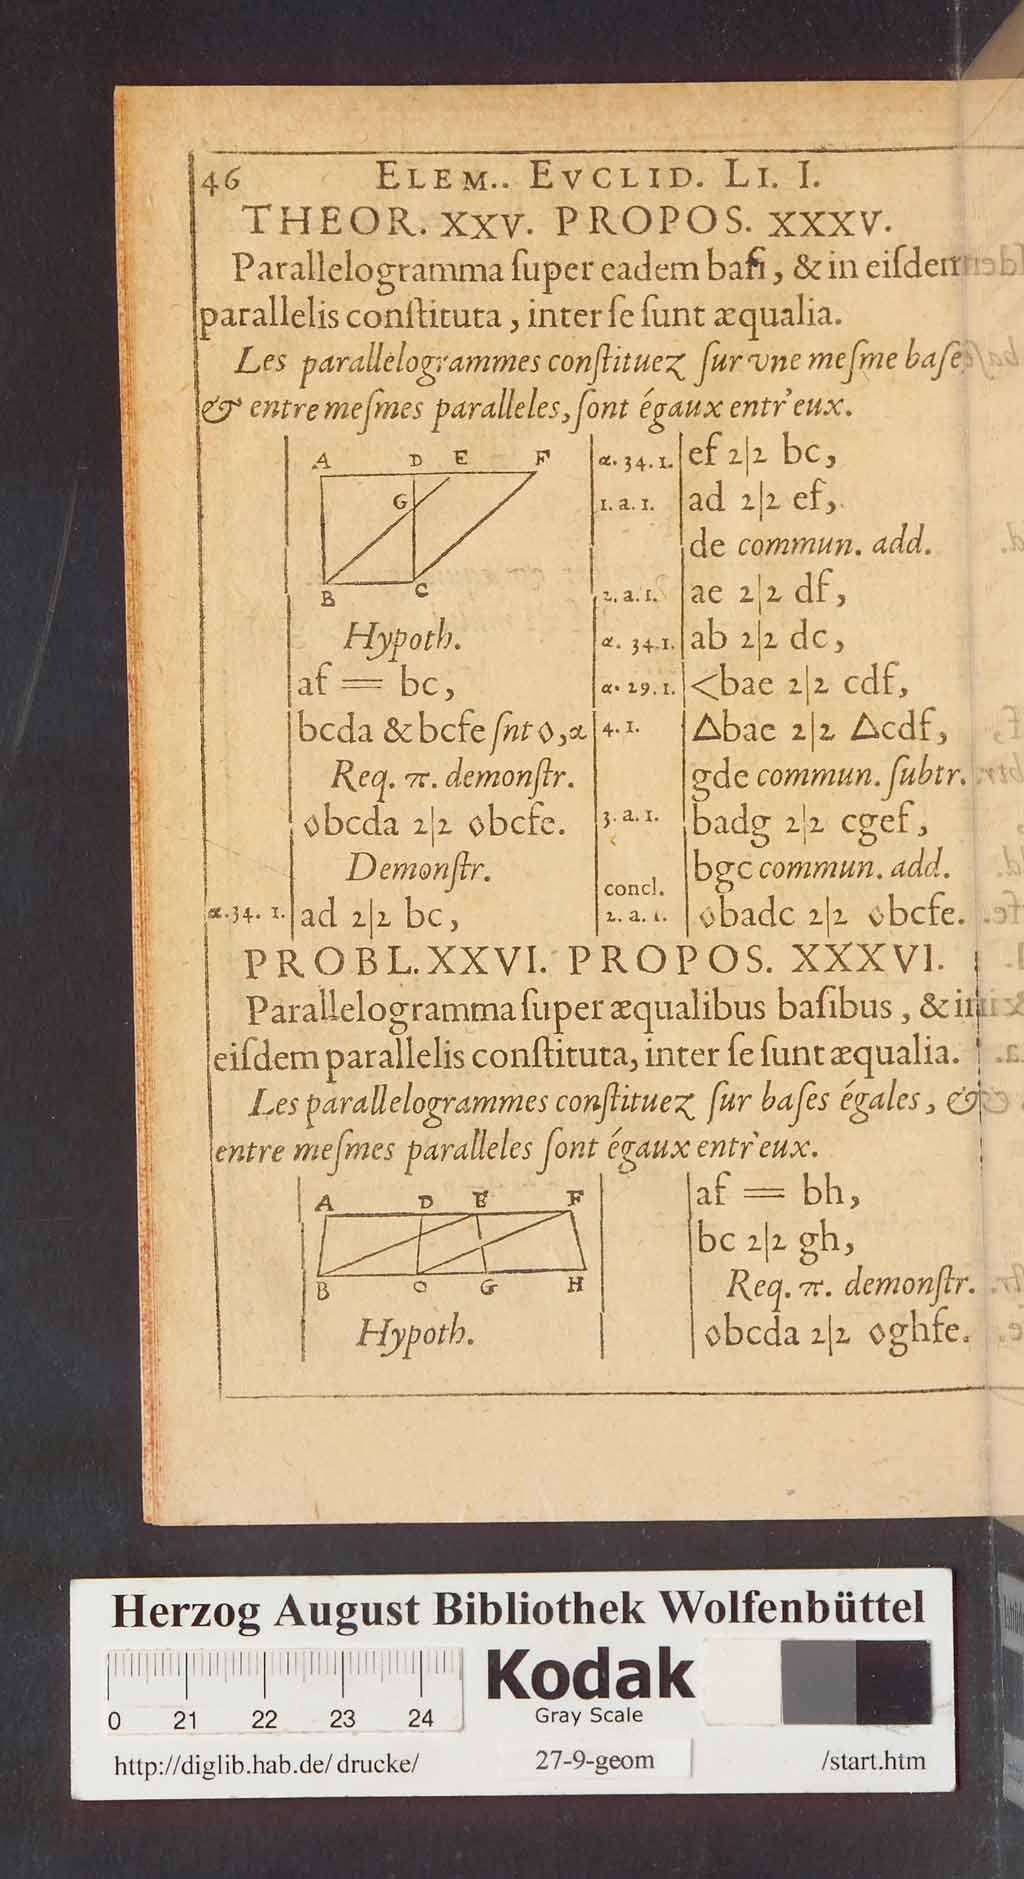 46 ELEM.. EVCLID. LI. I.
THEOR. XXV. PROPOS. XXXV.
Parallelogramma ſuper eadem baſi, & in eiſdem
parallelis conſtituta, inter ſe ſunt æqualia.
Les parallelogrammes conſtituez ſur vne meſme baſe
& entre meſmes paralleles, ſont égaux entr'eux.
A D E F
G
B C
Hypoth.
af = bc,
bcda & bcfe ſnt ◊, α
Req. π. demonſtr.
◊bcda 2|2 ◊bcfe.
Demonſtr.
α. 34. 1. ad 2|2 bc,
α. 34. 1. ef 2|2 bc,
1. a. 1. ad 2|2 ef,
de commun. add.
2. a. 1. ae 2|2 df,
α. 34. 1. ab 2|2 dc,
α. 29. 1. <bae 2|2 cdf,
4. 1. △bae 2|2 △cdf,
gde commun. ſubtr.
3. a. 1. badg 2|2 cgef,
bgc commun. add.
concl.
2. a. 1. ◊badc 2|2 ◊bcfe.
PROBL. XXVI. PROPOS. XXXVI.
Parallelogramma ſuper æqualibus baſibus, & in
eiſdem parallelis conſtituta, inter ſe ſunt æqualia.
Les parallelogrammes conſtituez ſur baſes égales, &
entre meſmes paralleles ſont égaux entr'eux.
A D E F
B C G H
Hypoth.
af = bh,
bc 2|2 gh,
Req. π. demonſtr.
◊bcda 2|2 ◊ghfe.
Herzog August Bibliothek Wolfenbüttel
0 21 22 23 24
Kodak
Gray Scale
http://diglib.hab.de/drucke/ 27-9-geom /start.htm